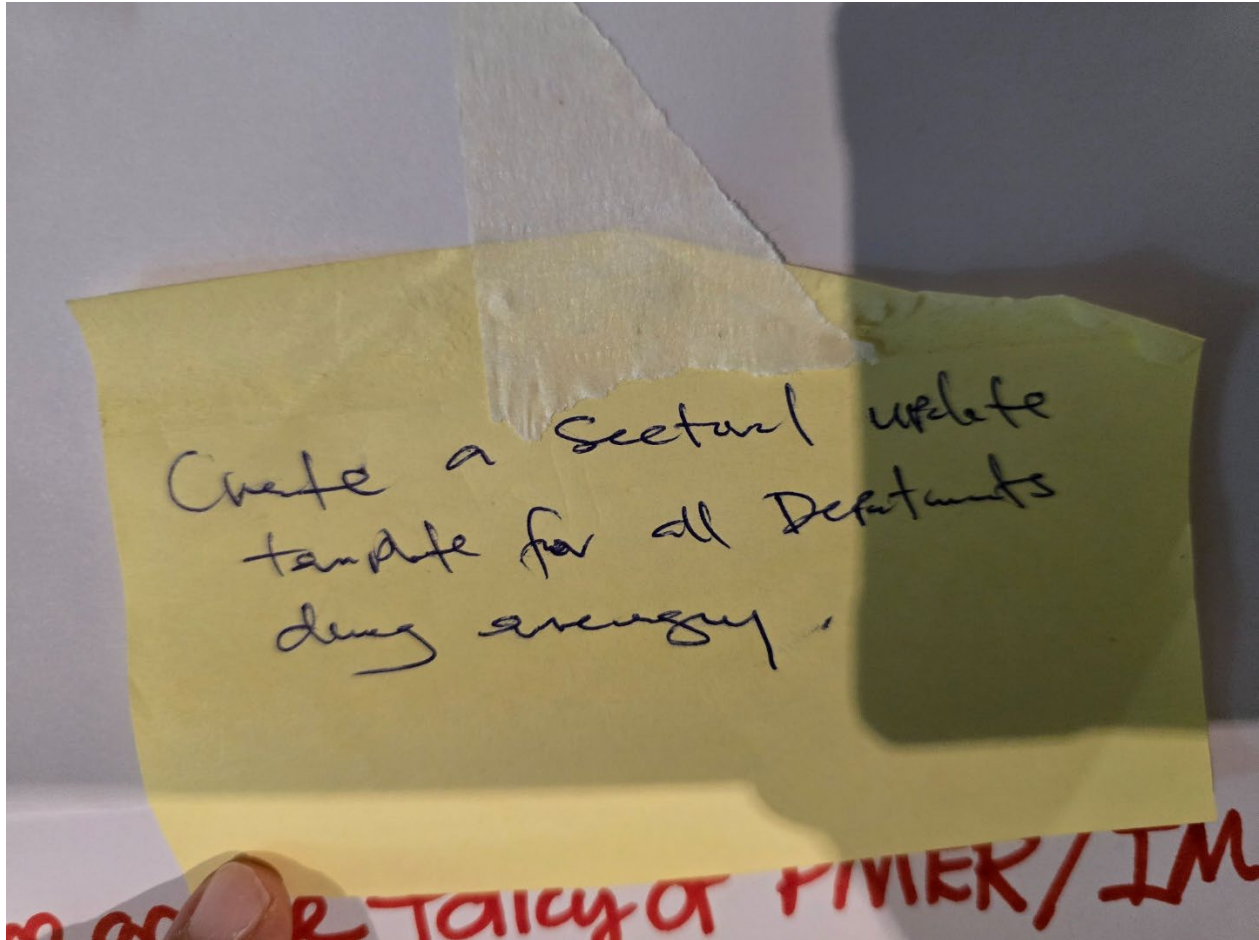 Create a Sectoral update
template for all Departments
during emergency.
of PMER/IM